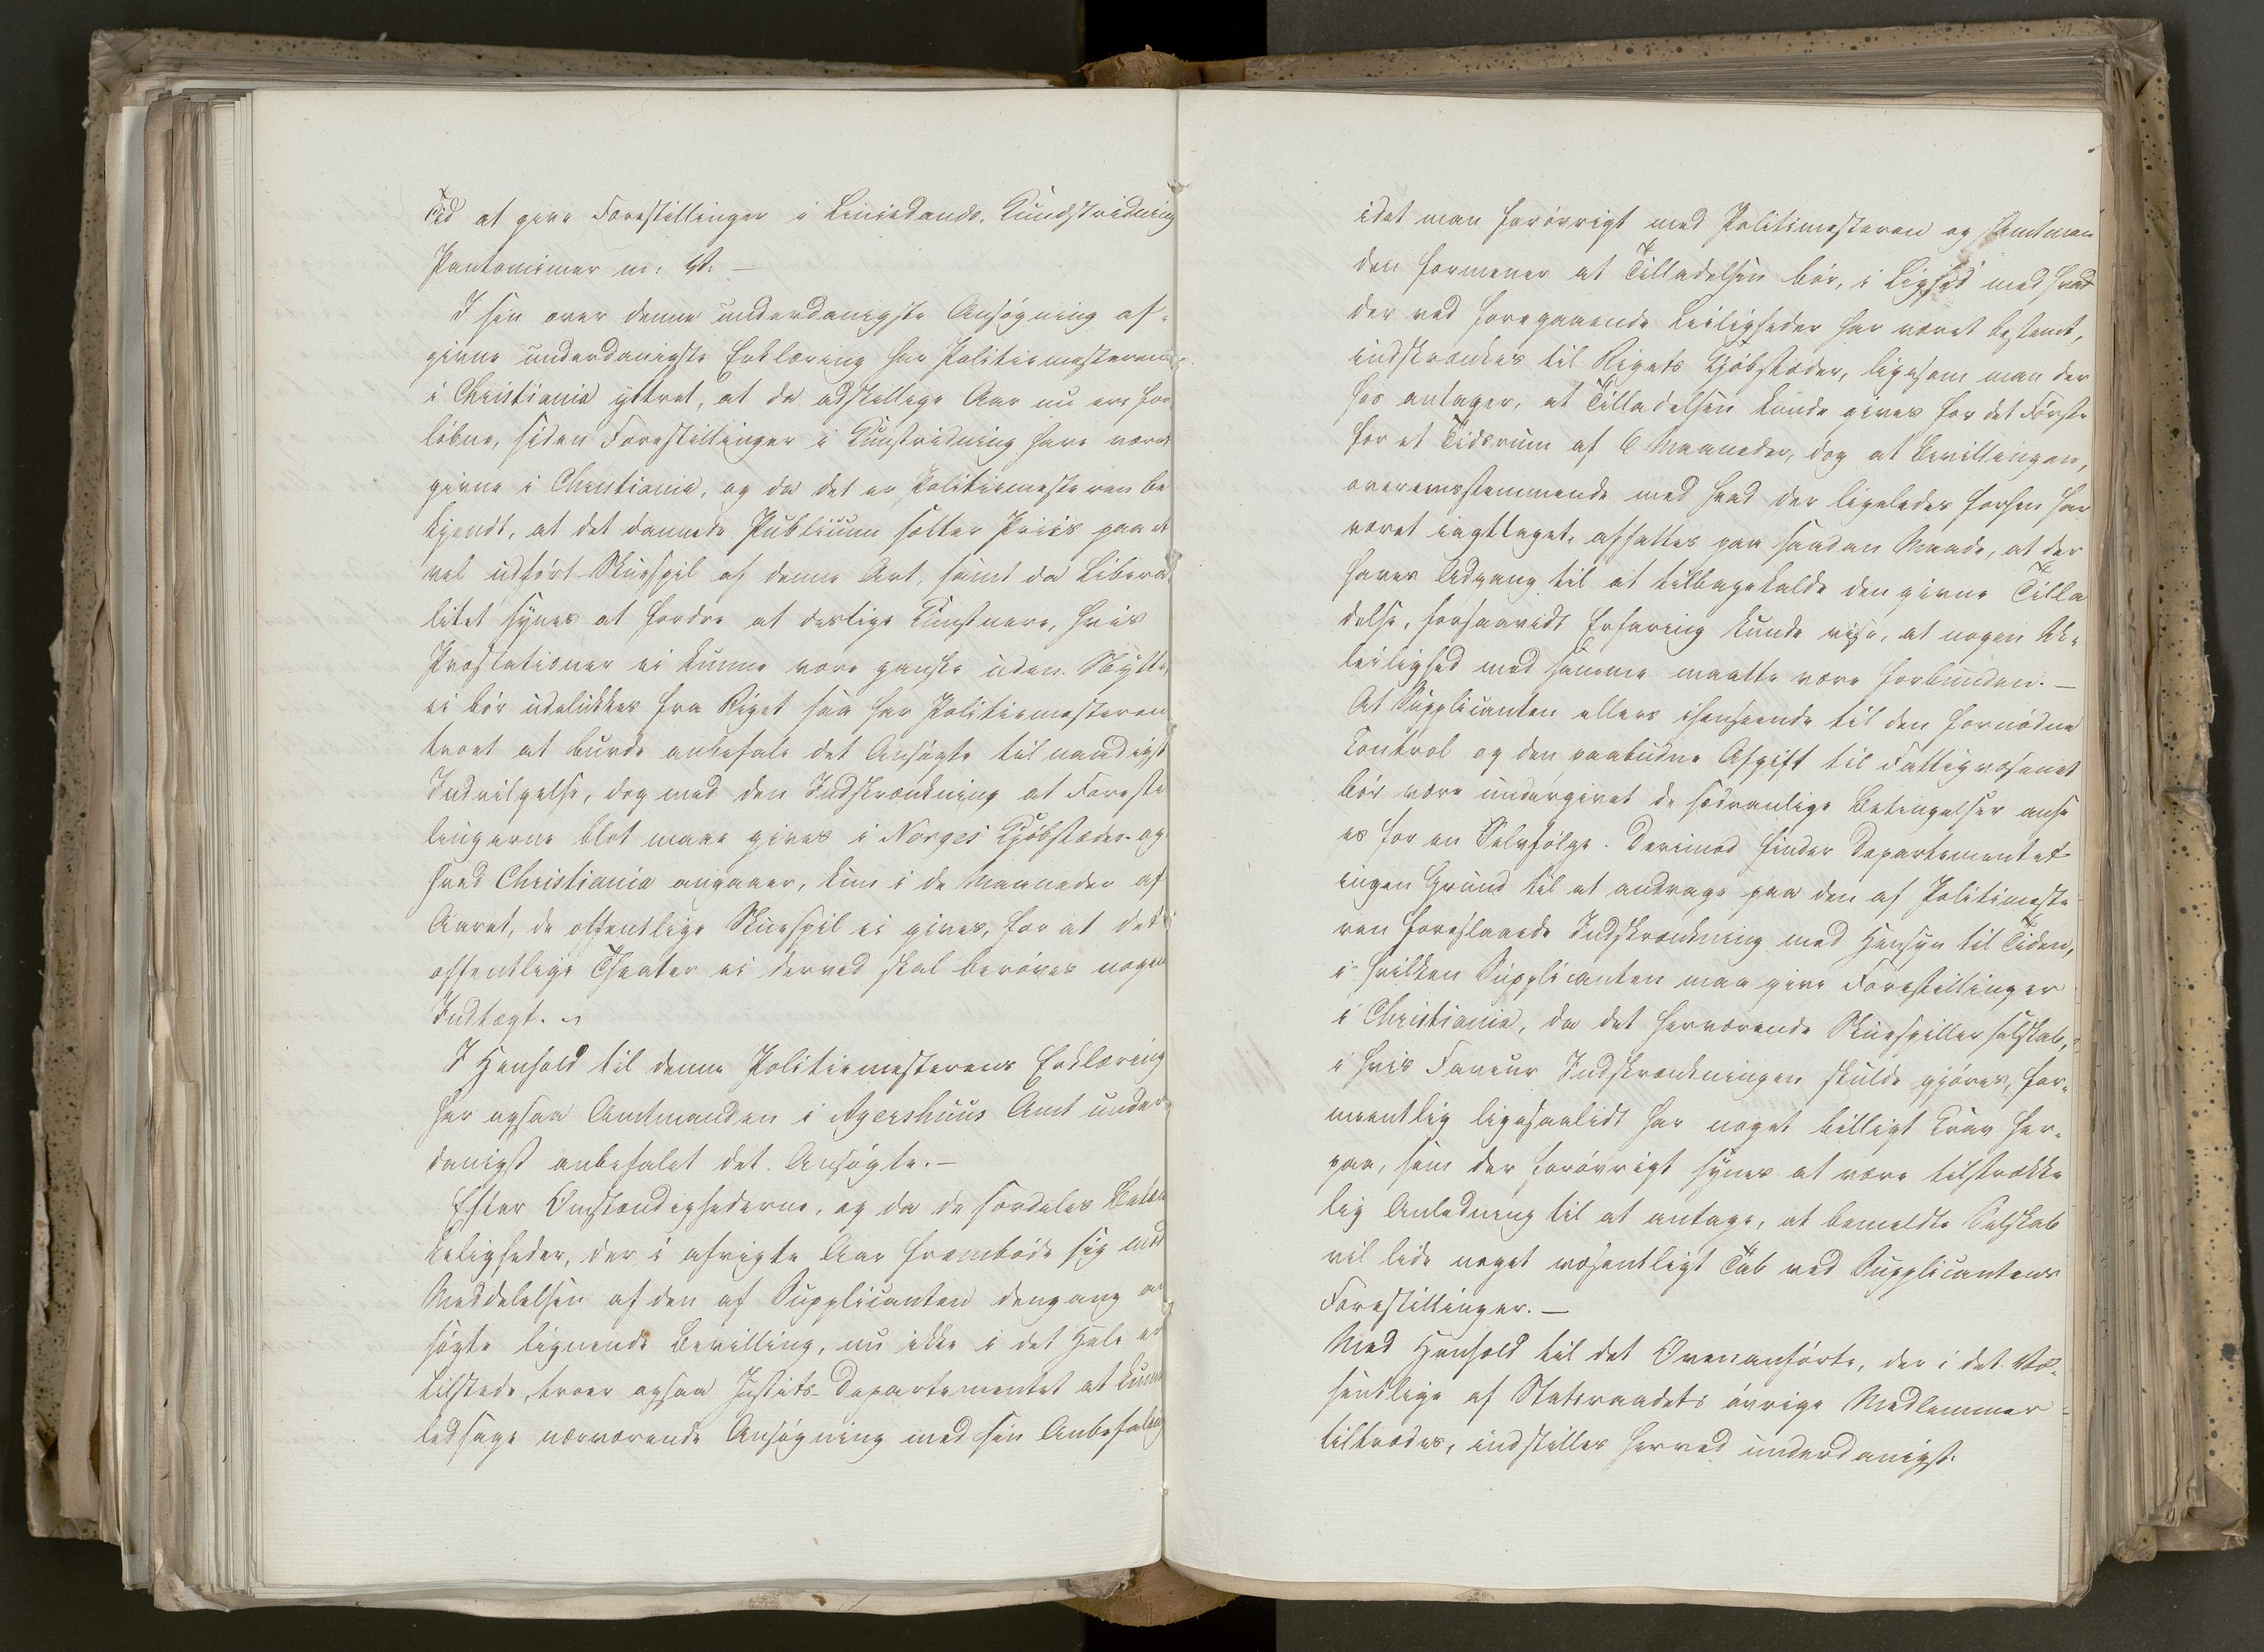 Tid at give Forestillinger i Liniedands, Kundstridning
Pantomimer m: V: —
I sin over denne underdanigste Ansøgning af-
givne underdanigste Erklæring har Politiemesteren
i Christiania yttret, at da adskillige Aar nu ere for
løbne, siden Forestillinger i Kunstridning have været
givne i Christiania, og da det er Politiemesteren be
kjendt, at det dannede Publicum sætter Priis paa et
vel udført Skuespil af denne Art, samt da Libera
litet synes at fordre at deslige Kunstnere, hvis
Præstationer ei kunne være ganske uden Nytte,
ei bør udelukkes fra Riget saa har Politiemesteren
troet at burde anbefale det Ansøgte til naadigst
Indvilgelse, dog med den Indskrænkning at Foreste
lingerne blot maae gives i Norges Kjøbstæder og
hvad Christiania angaaer, kun i de Maaneder af
Aaret, de offentlige Skuespil ei gives, for at det
offentlige Theater ei derved skal berøves nogen
Indtægt.
I Henhold til denne Politiemesterens Erklæring
har ogsaa Amtmanden i Agershuus Amt under-
danigst anbefalet det Ansøgte. —
Efter Omstændighederne, og da de særdeles Betæn
keligheder, der i afvigte Aar frembøde sig mod
Meddelelsen af den af Supplicanten dengang an
søgte lignende Bevilling, nu ikke i det Hele er
tilstede, troer ogsaa Justits-Departementet at kunne
ledsage nærværende Ansøgning med sin Anbefaling
idet man forøvrigt med Politimesteren og Amtman
den formener at Tilladelsen bør, i Lighed med hvad
der ved foregaaende Leiligheder har været bestemt,
indskrænkes til Rigets Kjøbstæder, ligesom man der
hos antager, at Tilladelsen kunde gives for det Første
for et Tidsrum af 6 Maaneder, dog at Bevillingen,
overensstemmende med hvad der ligeledes forhen har
været iagttaget, affattes paa saadan Maade, at der
haves Adgang til at tilbagekalde den givne Tilla
delse, forsaavidt Erfaring kunde vise, at nogen Ube-
leilighed med samme maatte være forbunden. —
At Supplicanten ellers ihenseende til den fornødne
Control og den paabudne Afgift til Fattigvæsenet
bør være undergivet de sædvanlige Betingelser anse
es for en Selvfølge. Derimod finder Departementet
ingen Grund til at andrage paa den af Politimeste
ren foreslaaede Indskrænkning med Hensyn til Tiden,
i hvilken Supplicanten maa give Forestillinger
i Christiania, da det herværende Skuespillerselskab,
i hvis Faveur Indskrænkningen skulde gjøres, for-
meentlig ligesaalidt har noget billigt Krav her-
paa, som der forøvrigt synes at være tilstrække
lig Anledning til at antage, at bemeldte Selskab
vil lide noget væsentligt Tab ved Supplicantens
Forestillinger. —
Med Henhold til det Ovenanførte, der i det Væ-
sentlige af Statsraadets øvrige Medlemmer
tiltrædes, indstilles herved underdanigst: